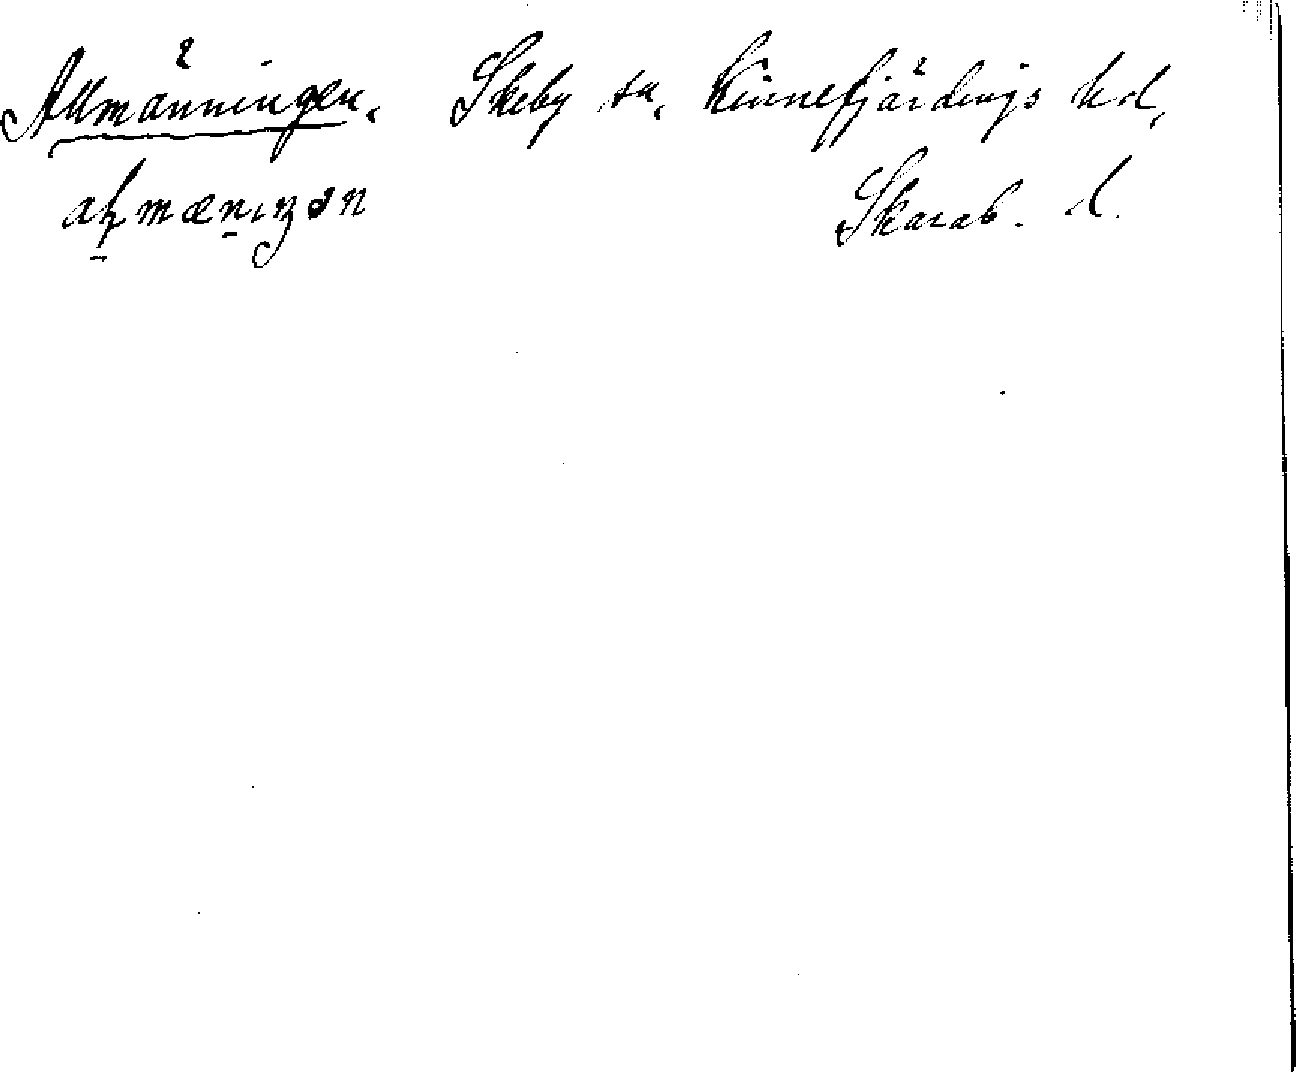 Allmänningen. Skeby sn. Kinnefjärdings hd,
Skarab. l.